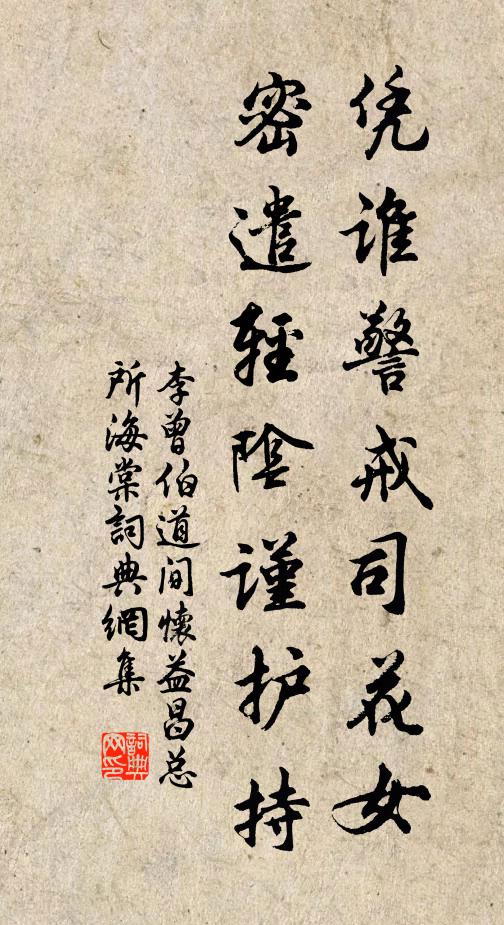 凭谁警戒司花女
密遣轻阴谨护持
李曾伯道间怀益昌总
所海棠詞典網集
詞典
网印